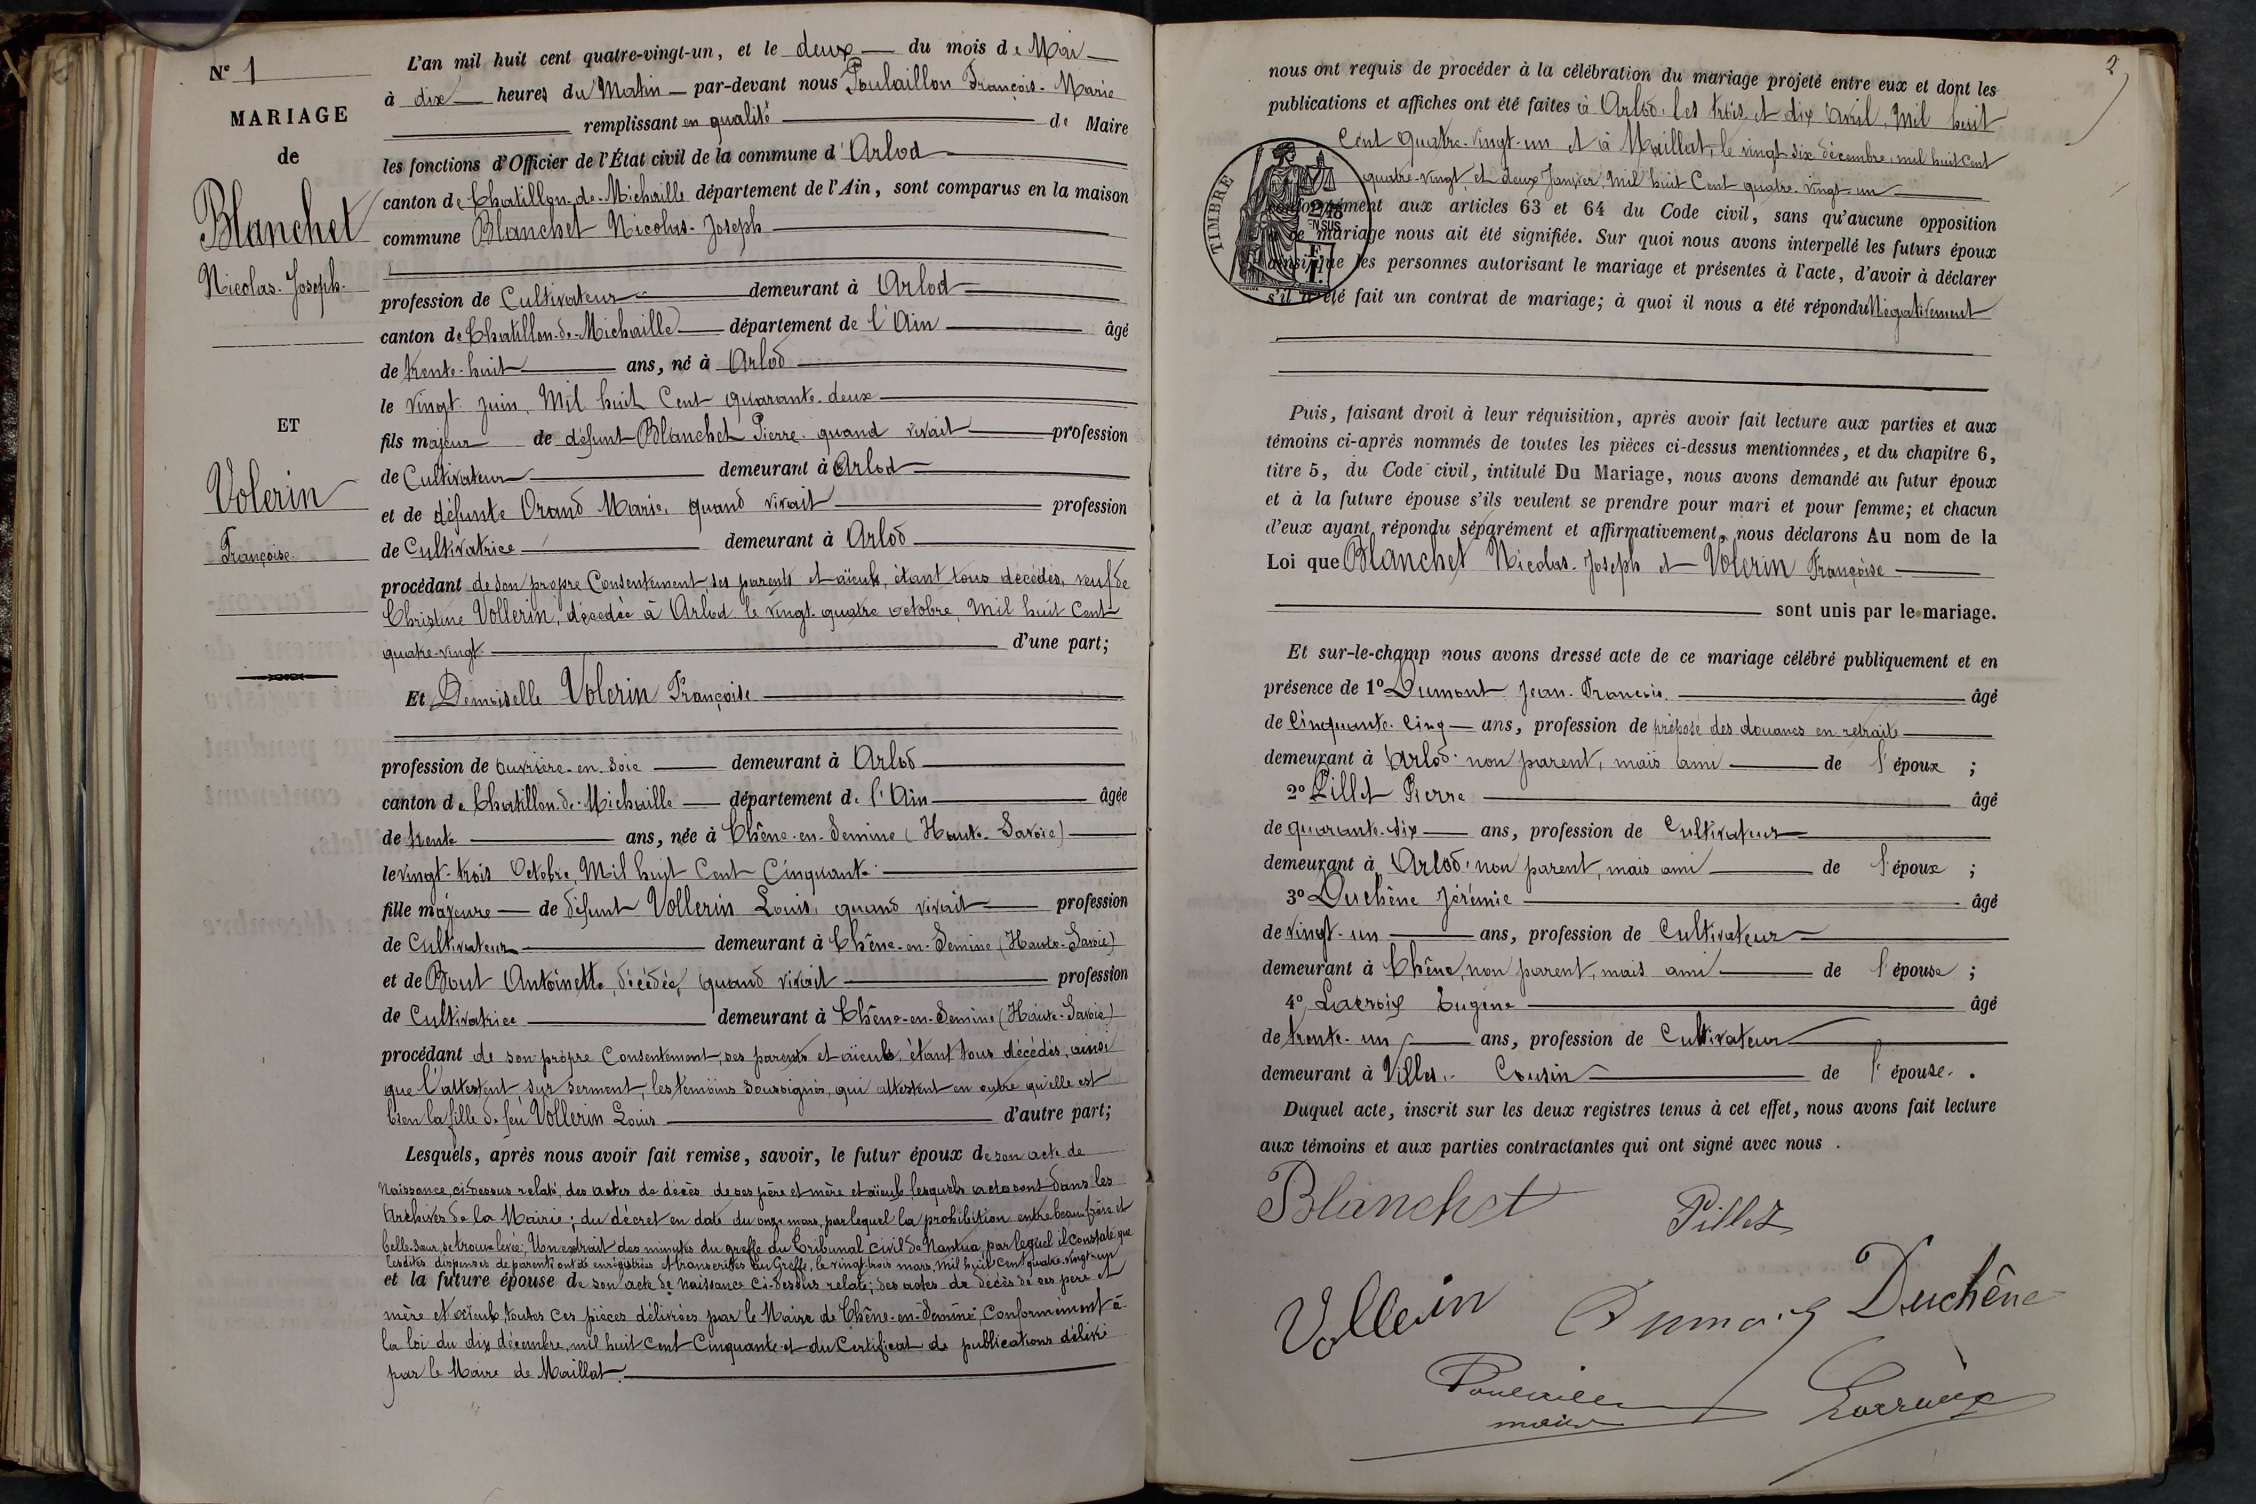 N° 1
MARIAGE
de
Blanchet
Nicolas-Joseph.
ET
Volerin
Françoise.
L'an mil huit cent quatre-vingt-un, et le deux du mois de Mai
à dix heures du Matin par-devant nous Poulaillon François-Marie
remplissant en qualité de Maire
les fonctions d'Officier de l'État civil de la commune d'Arlod
canton de Chatillon-de-Michaille département de l'Ain, sont comparus en la maison
commune Blanchet Nicolas-Joseph
profession de Cultivateur demeurant à Arlod
canton de Chatillon-de-Michaille département de l'Ain âgé
de trente-huit ans, né à Arlod
le vingt Juin, Mil huit Cent quarante-deux
fils majeur de défunt Blanchet Pierre quand vivait profession
de Cultivateur demeurant à Arlod
et de défunte Orand Marie, quand vivait profession
de Cultivatrice demeurant à Arlod
procédant de son propre Consentement ses parents et aïeuls, étant tous décédés, veuf de
Christine Vollerin, décédée à Arlod le vingt-quatre octobre, Mil huit Cent
quatre-vingt d'une part;
Et Demoiselle Volerin Françoise
profession de ouvrière-en-soie demeurant à Arlod
canton de Chatillon-de-Michaille département de l'Ain âgée
de trente ans, née à Chêne-en-Semine (Haute-Savoie)
le vingt-trois Octobre, Mil huit Cent Cinquante
fille majeure de défunt Vollerin Louis, quand vivait profession
de Cultivateur demeurant à Chêne-en-Semine (Haute-Savoie)
et de Bout Antoinette, décédée, quand vivait profession
de Cultivatrice demeurant à Chêne-en-Semine (Haute-Savoie)
procédant de son propre Consentement, ses parents et aïeuls, étant tous décédés, ainsi
que l'attestent sur serment, les témoins soussignés, qui attestent en outre qu'elle est
bien la fille de feu Vollerin Louis d'autre part;
Lesquels, après nous avoir fait remise, savoir, le futur époux de son acte de
Naissance, ci-dessus relaté, des actes de décès de ses père et mère et aïeuls, lesquels actes sont dans les
Archives de la Mairie; du décret en date du onze mars, par lequel la prohibition entre beau-frère et
belle-sœur, se trouve levée; Un extrait des minutes du greffe du Tribunal civil de Nantua, par lequel il constate que
lesdites dispenses de parenté ont été enregistrées et transcrites au Greffe, le vingt-trois mars, mil huit cent quatre-vingt-un
et la future épouse de son acte de Naissance ci-dessus relaté; des actes de décès de ses père et
mère et aïeuls, toutes ces pièces délivrées par le Maire de Chêne-en-Semine, Conformément à
la loi du dix décembre, mil huit cent Cinquante et du Certificat de publications délivré
par le Maire de Maillat.
2
nous ont requis de procéder à la célébration du mariage projeté entre eux et dont les
publications et affiches ont été faites à Arlod, les trois et dix Avril, Mil huit
Cent Quatre-Vingt-un et à Maillat, le vingt six décembre, mil huit cent
quatre-vingt, et deux Janvier, Mil huit Cent quatre-vingt-un
TIMBRE
conformément aux articles 63 et 64 du Code civil, sans qu'aucune opposition
à ce mariage nous ait été signifiée. Sur quoi nous avons interpellé les futurs époux
ainsi que les personnes autorisant le mariage et présentes à l'acte, d'avoir à déclarer
s'il a été fait un contrat de mariage; à quoi il nous a été répondu Négativement
Puis, faisant droit à leur réquisition, après avoir fait lecture aux parties et aux
témoins ci-après nommés de toutes les pièces ci-dessus mentionnées, et du chapitre 6,
titre 5, du Code civil, intitulé Du Mariage, nous avons demandé au futur époux
et à la future épouse s'ils veulent se prendre pour mari et pour femme; et chacun
d'eux ayant répondu séparément et affirmativement, nous déclarons Au nom de la
Loi que Blanchet Nicolas-Joseph et Volerin Françoise
sont unis par le mariage.
Et sur-le-champ nous avons dressé acte de ce mariage célébré publiquement et en
présence de 1° Dumont Jean-François. âgé
de Cinquante-Cinq ans, profession de préposé des douanes en retraite
demeurant à Arlod non parent, mais ami de l'époux ;
2° Pillet Pierre âgé
de quarante-six ans, profession de Cultivateur
demeurant à Arlod, non parent, mais ami de l'époux ;
3° Duchêne Jérémie âgé
de vingt-un ans, profession de Cultivateur
demeurant à Chêne, non parent, mais ami de l'épouse ;
4° Lacroix Eugène âgé
de trente-un ans, profession de Cultivateur
demeurant à Villes, Cousin de l'épouse.
Duquel acte, inscrit sur les deux registres tenus à cet effet, nous avons fait lecture
aux témoins et aux parties contractantes qui ont signé avec nous .
Blanchet
Pillet
Vollerin
Dumont
Duchêne
Poulaillon
maire
Lacroix